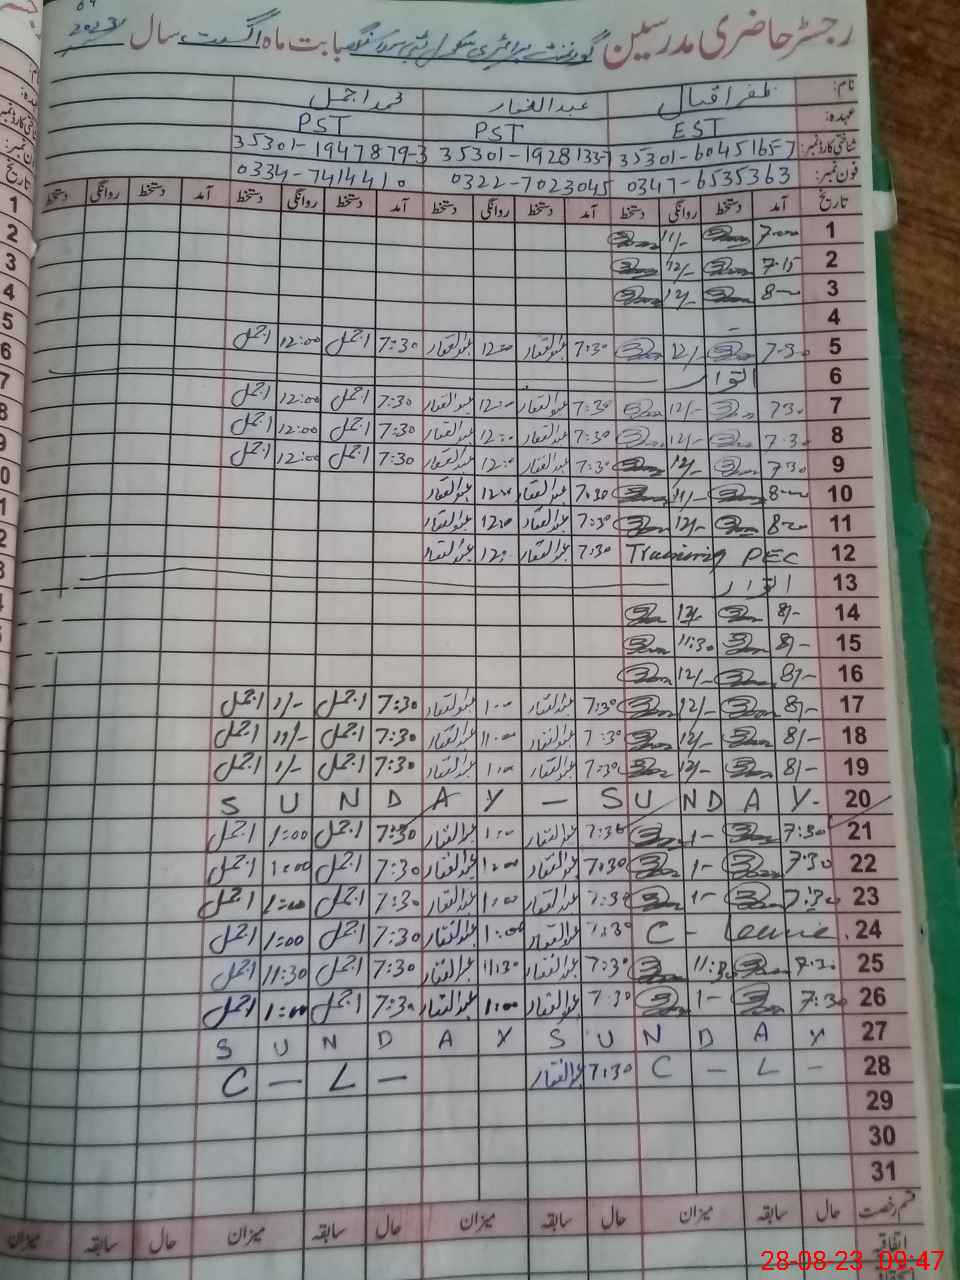 رجسٹر حاضری مدرسین گورنمنٹ پرائمری سکول بابت ماہ اگست سال 2023
نام: ظفر اقبال عبدالغفار محمد اجمل
عہدہ: EST PST PST
شناختی کارڈ نمبر: 35301-6045165-7 35301-1928133-7 35301-1947879-3
فون نمبر: 0347-6535363 0322-7023045 0334-7414410
تاریخ آمد دستخط روانگی دستخط آمد دستخط روانگی دستخط آمد دستخط روانگی دستخط آمد دستخط روانگی دستخط
1 7-00 11/-
2 7-15 12/-
3 8-00 12/-
4 -
5 7-30 12/- 7:30 عبدالغفار 12:00 عبدالغفار 7:30 اجمل 12:00 اجمل
6 اتوار
7 730 12/- 7:30 عبدالغفار 12:00 عبدالغفار 7:30 اجمل 12:00 اجمل
8 7-30 12/- 7:30 عبدالغفار 12:00 عبدالغفار 7:30 اجمل 12:00 اجمل
9 730 12/- 7:30 عبدالغفار 12:00 عبدالغفار 7:30 اجمل 12:00 اجمل
10 8-00 11/- 7:30 عبدالغفار 12:00 عبدالغفار
11 8-00 12/- 7:30 عبدالغفار 12:00 عبدالغفار
12 Training PEC 7:30 عبدالغفار 12: عبدالغفار
13 اتوار
14 8/- 12/-
15 8/- 11:30
16 8/- 12/-
17 8/- 12/- 7:30 عبدالغفار 1:00 عبدالغفار 7:30 اجمل 1/- اجمل
18 8/- 12/- 7:30 عبدالغفار 11:00 عبدالغفار 7:30 اجمل 11/- اجمل
19 8/- 12/- 7:30 عبدالغفار 1:00 عبدالغفار 7:30 اجمل 1/- اجمل
20 S U N D A Y — S U N D A Y-
21 7:30 1- 7:30 عبدالغفار 1:00 عبدالغفار 7:30 اجمل 1:00 اجمل
22 7:30 1- 7:30 عبدالغفار 1:00 عبدالغفار 7:30 اجمل 1:00 اجمل
23 7:30 1- 7:30 عبدالغفار 1:00 عبدالغفار 7:30 اجمل 1:00 اجمل
24 C - Leave 7:30 عبدالغفار 1:00 عبدالغفار 7:30 اجمل 1:00 اجمل
25 7:30 11:30 7:30 عبدالغفار 11:30 عبدالغفار 7:30 اجمل 11:30 اجمل
26 7:30 1- 7:30 عبدالغفار 1:00 عبدالغفار 7:30 اجمل 1:00 اجمل
27 S U N D A Y S U N D A Y
28 C - L - 7:30 عبدالغفار C — L —
29
30
31
قسم رخصت حال سابقہ میزان حال سابقہ میزان حال سابقہ میزان حال سابقہ میزان
اتفاقیہ
28-08-23 09:47